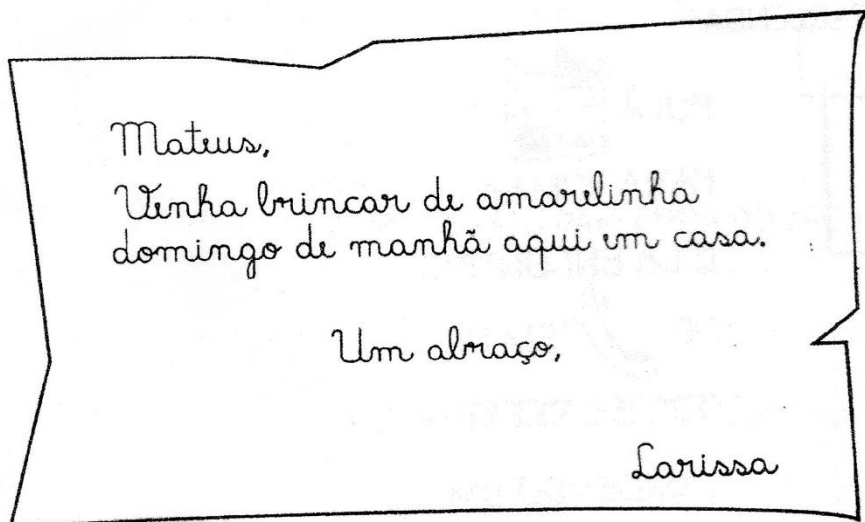 Mateus,
Venha brincar de amarelinha
domingo de manhã aqui em casa.
Um abraço,
Larissa